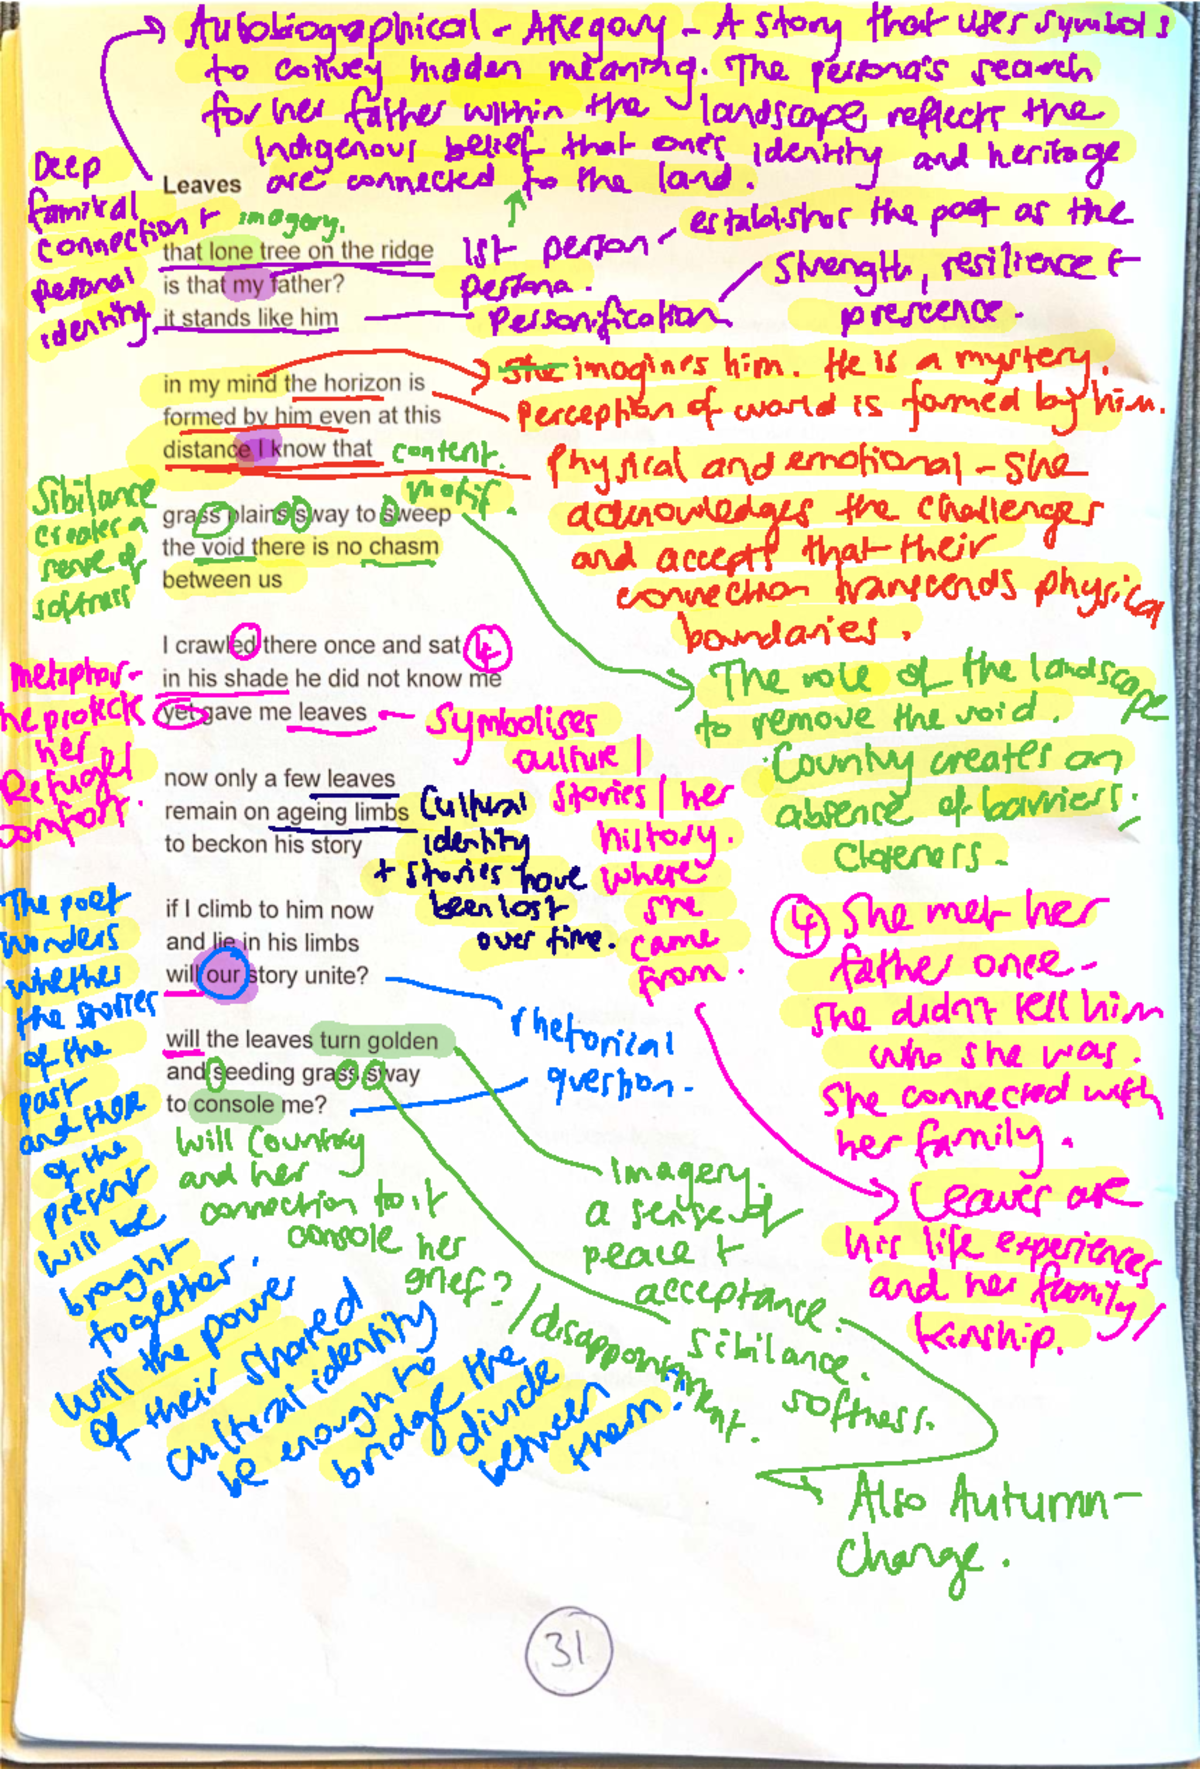 Autobiographical - Allegory - A story that uses symbols
to convey hidden meaning. The persona's search
for her father within the landscape, reflects the
Indigenous belief that one's identity and heritage
are connected to the land.
Deep
familial
connection +
personal
identity.
Leaves
imagery.
that lone tree on the ridge
is that my father?
it stands like him
1st person
persona.
Personification
establishes the poet as the
strength, resilience +
prescence.
in my mind the horizon is
formed by him even at this
distance I know that
She imagines him. He is a mystery.
Perception of world is formed by him.
content.
motif.
Physical and emotional - She
acknowledges the challenges
and accepts that their
connection transcends physical
boundaries.
Sibilance
creates a
sense of
softness
grass plains sway to sweep
the void there is no chasm
between us
The role of the landscape
to remove the void.
Country creates an
absence of barriers.
Closeness.
I crawled there once and sat
4
in his shade he did not know me
yet gave me leaves
metaphor -
he protects
her
Refuge/
comfort.
Symbolises
culture /
stories / her
history.
where
she
came
from.
now only a few leaves
remain on ageing limbs
to beckon his story
Cultural
identity
+ stories have
been lost
over time.
4 She met her
father once -
she didn't tell him
who she was.
She connected with
her family.
Leaves are
his life experiences
and her family/
kinship.
if I climb to him now
and lie in his limbs
will our story unite?
rhetorical
question.
The poet
wonders
whether
the stories
of the
past
and those
of the
present
will be
brought
together.
Will the power
of their shared
cultural identity
be enough to
bridge the
divide
between
them?
will the leaves turn golden
and seeding grass sway
to console me?
Will Country
and her
connection to it
console her
grief? / disappointment.
Imagery.
a sense of
peace +
acceptance.
Sibilance.
softness.
Also Autumn -
Change.
31